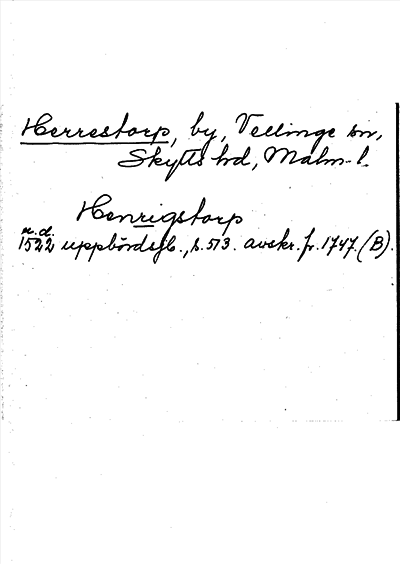 Herrestorp, by, Vellinge sn,
Skytts hd, Malm. l.
Henrigstorp
n. d.
1522 uppbördsjb., s. 573. avskr. fr. 1747. (B).